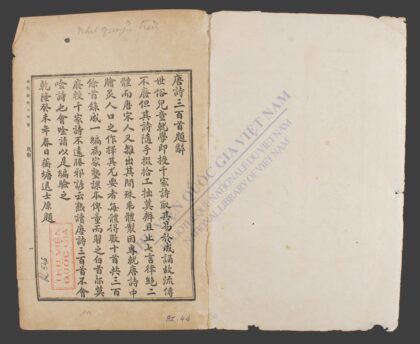 唐詩三百首題辭
世俗兒童就學即授千家詩取其易於成誦故流傳
不廢但其詩隨手掇拾工拙莫辨且止七言律絕二
體而唐宋人又雜出其間殊乖體製因專就唐詩中
膾炙人口之作擇其尤要者每體得數十首共三百
餘首錄成一編為家塾課本俾童而習之白首亦莫
廢較千家詩不遠勝耶諺云熟讀唐詩三百首不會
吟詩也會吟請以是編驗之
乾隆癸未年春日蘅塘退士原題
THƯ VIỆN
QUỐC GIA
THƯ VIỆN QUỐC GIA VIỆT NAM
BIBLIOTHÈQUE NATIONALE DU VIETNAM
NATIONAL LIBRARY OF VIETNAM